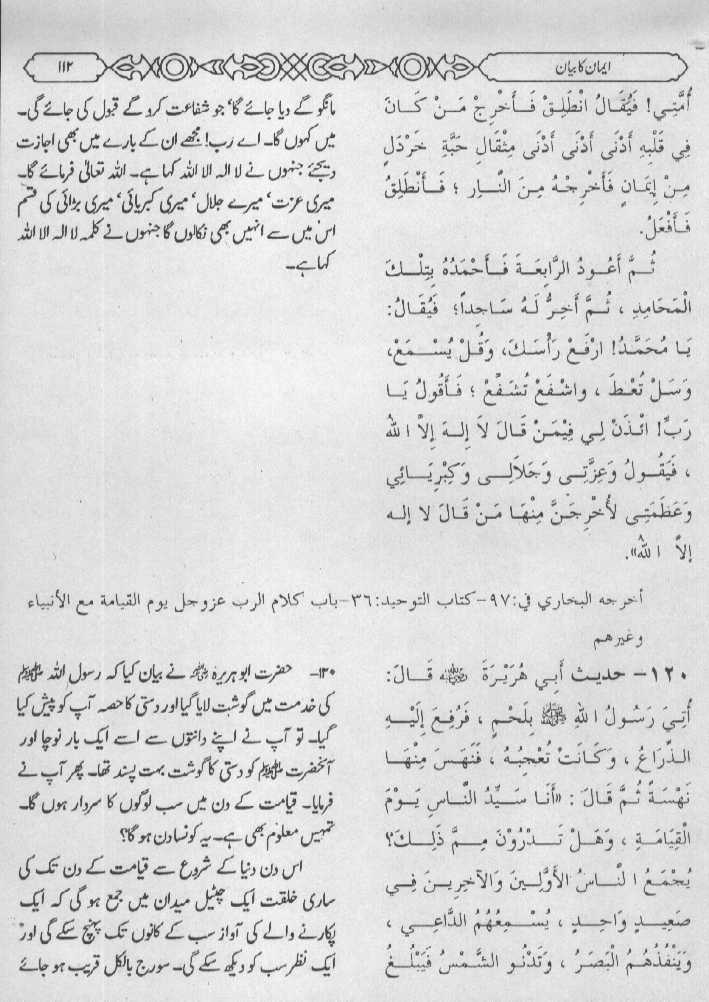 ایمان کا بیان
۱۱۲
أُمَّتِي! فَيُقَالُ انْطَلِقْ فَأَخْرِجْ مَنْ كَانَ
فِي قَلْبِهِ أَدْنَى أَدْنَى أَدْنَى مِثْقَالِ حَبَّةِ خَرْدَلٍ
مِنْ إِيمَانٍ فَأَخْرِجْهُ مِنَ النَّارِ ؛ فَأَنْطَلِقُ
فَأَفْعَلُ.
ثُمَّ أَعُودُ الرَّابِعَةَ فَأَحْمَدُهُ بِتِلْكَ
الْمَحَامِدِ ، ثُمَّ أَخِرُّ لَهُ سَاجِداً؛ فَيُقَالُ:
يَا مُحَمَّدُ! ارْفَعْ رَأْسَكَ، وَقُلْ يُسْمَعْ،
وَسَلْ تُعْطَ ، وَاشْفَعْ تُشَفَّعْ ؛ فَأَقُولُ يَا
رَبِّ! ائْذَنْ لِي فِيْمَنْ قَالَ لاَ إِلهَ إِلاَّ اللهُ
، فَيَقُولُ وَعِزَّتِى وَجَلاَلِى وَكِبْرِيَائِي
وَعَظَمَتِى لأُخْرِجَنَّ مِنْهَا مَنْ قَالَ لا إِله
إِلاَّ اللهُ».
مانگو گے دیا جائے گا‘ جو شفاعت کرو گے قبول کی جائے گی۔
میں کہوں گا۔ اے رب! مجھے ان کے بارے میں بھی اجازت
دیجئے جنہوں نے لا الہ الا اللہ کہا ہے۔ اللہ تعالیٰ فرمائے گا۔
میری عزت‘ میرے جلال‘ میری کبریائی‘ میری بڑائی کی قسم
اس میں سے انہیں بھی نکالوں گا جنہوں نے کلمہ لا الہ الا اللہ
کہا ہے۔
أخرجه البخاري في: ٩٧-كتاب التوحيد: ٣٦-باب كلام الرب عزوجل يوم القيامة مع الأنبياء
وغيرهم
١٢٠- حديث أَبِي هُرَيْرَةَ رضي الله عنه قَالَ:
أُتِيَ رَسُولُ اللهِ ﷺ بِلَحْمٍ ، فَرُفِعَ إِلَيْهِ
الذِّرَاعُ ، وَكَانَتْ تُعْجِبُهُ ، فَنَهَسَ مِنْهَا
نَهْسَةً ثُمَّ قَالَ : «أَنَا سَيِّدُ النَّاسِ يَوْمَ
الْقِيَامَةِ ، وَهَلْ تَدْرُوْنَ مِمَّ ذَلِكَ؟
يُجْمَعُ النَّاسُ الأَوَّلِينَ وَالآخِرِينَ فِي
صَعِيدٍ وَاحِدٍ ، يُسْمِعُهُمُ الدَّاعِي ،
وَيَنْفُذُهُمُ الْبَصَرُ ، وَتَدْنُو الشَّمْسُ فَيَبْلُغُ
۱۲۰۔ حضرت ابو ہریرہ رضی اللہ عنہ نے بیان کیا کہ رسول اللہ ﷺ
کی خدمت میں گوشت لایا گیا اور دستی کا حصہ آپ کو پیش کیا
گیا۔ تو آپ نے اپنے دانتوں سے اسے ایک بار نوچا اور
آنحضرت ﷺ کو دستی کا گوشت بہت پسند تھا۔ پھر آپ نے
فرمایا۔ قیامت کے دن میں سب لوگوں کا سردار ہوں گا۔
تمہیں معلوم بھی ہے۔ یہ کونسا دن ہو گا؟
اس دن دنیا کے شروع سے قیامت کے دن تک کی
ساری خلقت ایک چٹیل میدان میں جمع ہو گی کہ ایک
پکارنے والے کی آواز سب کے کانوں تک پہنچ سکے گی اور
ایک نظر سب کو دیکھ سکے گی۔ سورج بالکل قریب ہو جائے